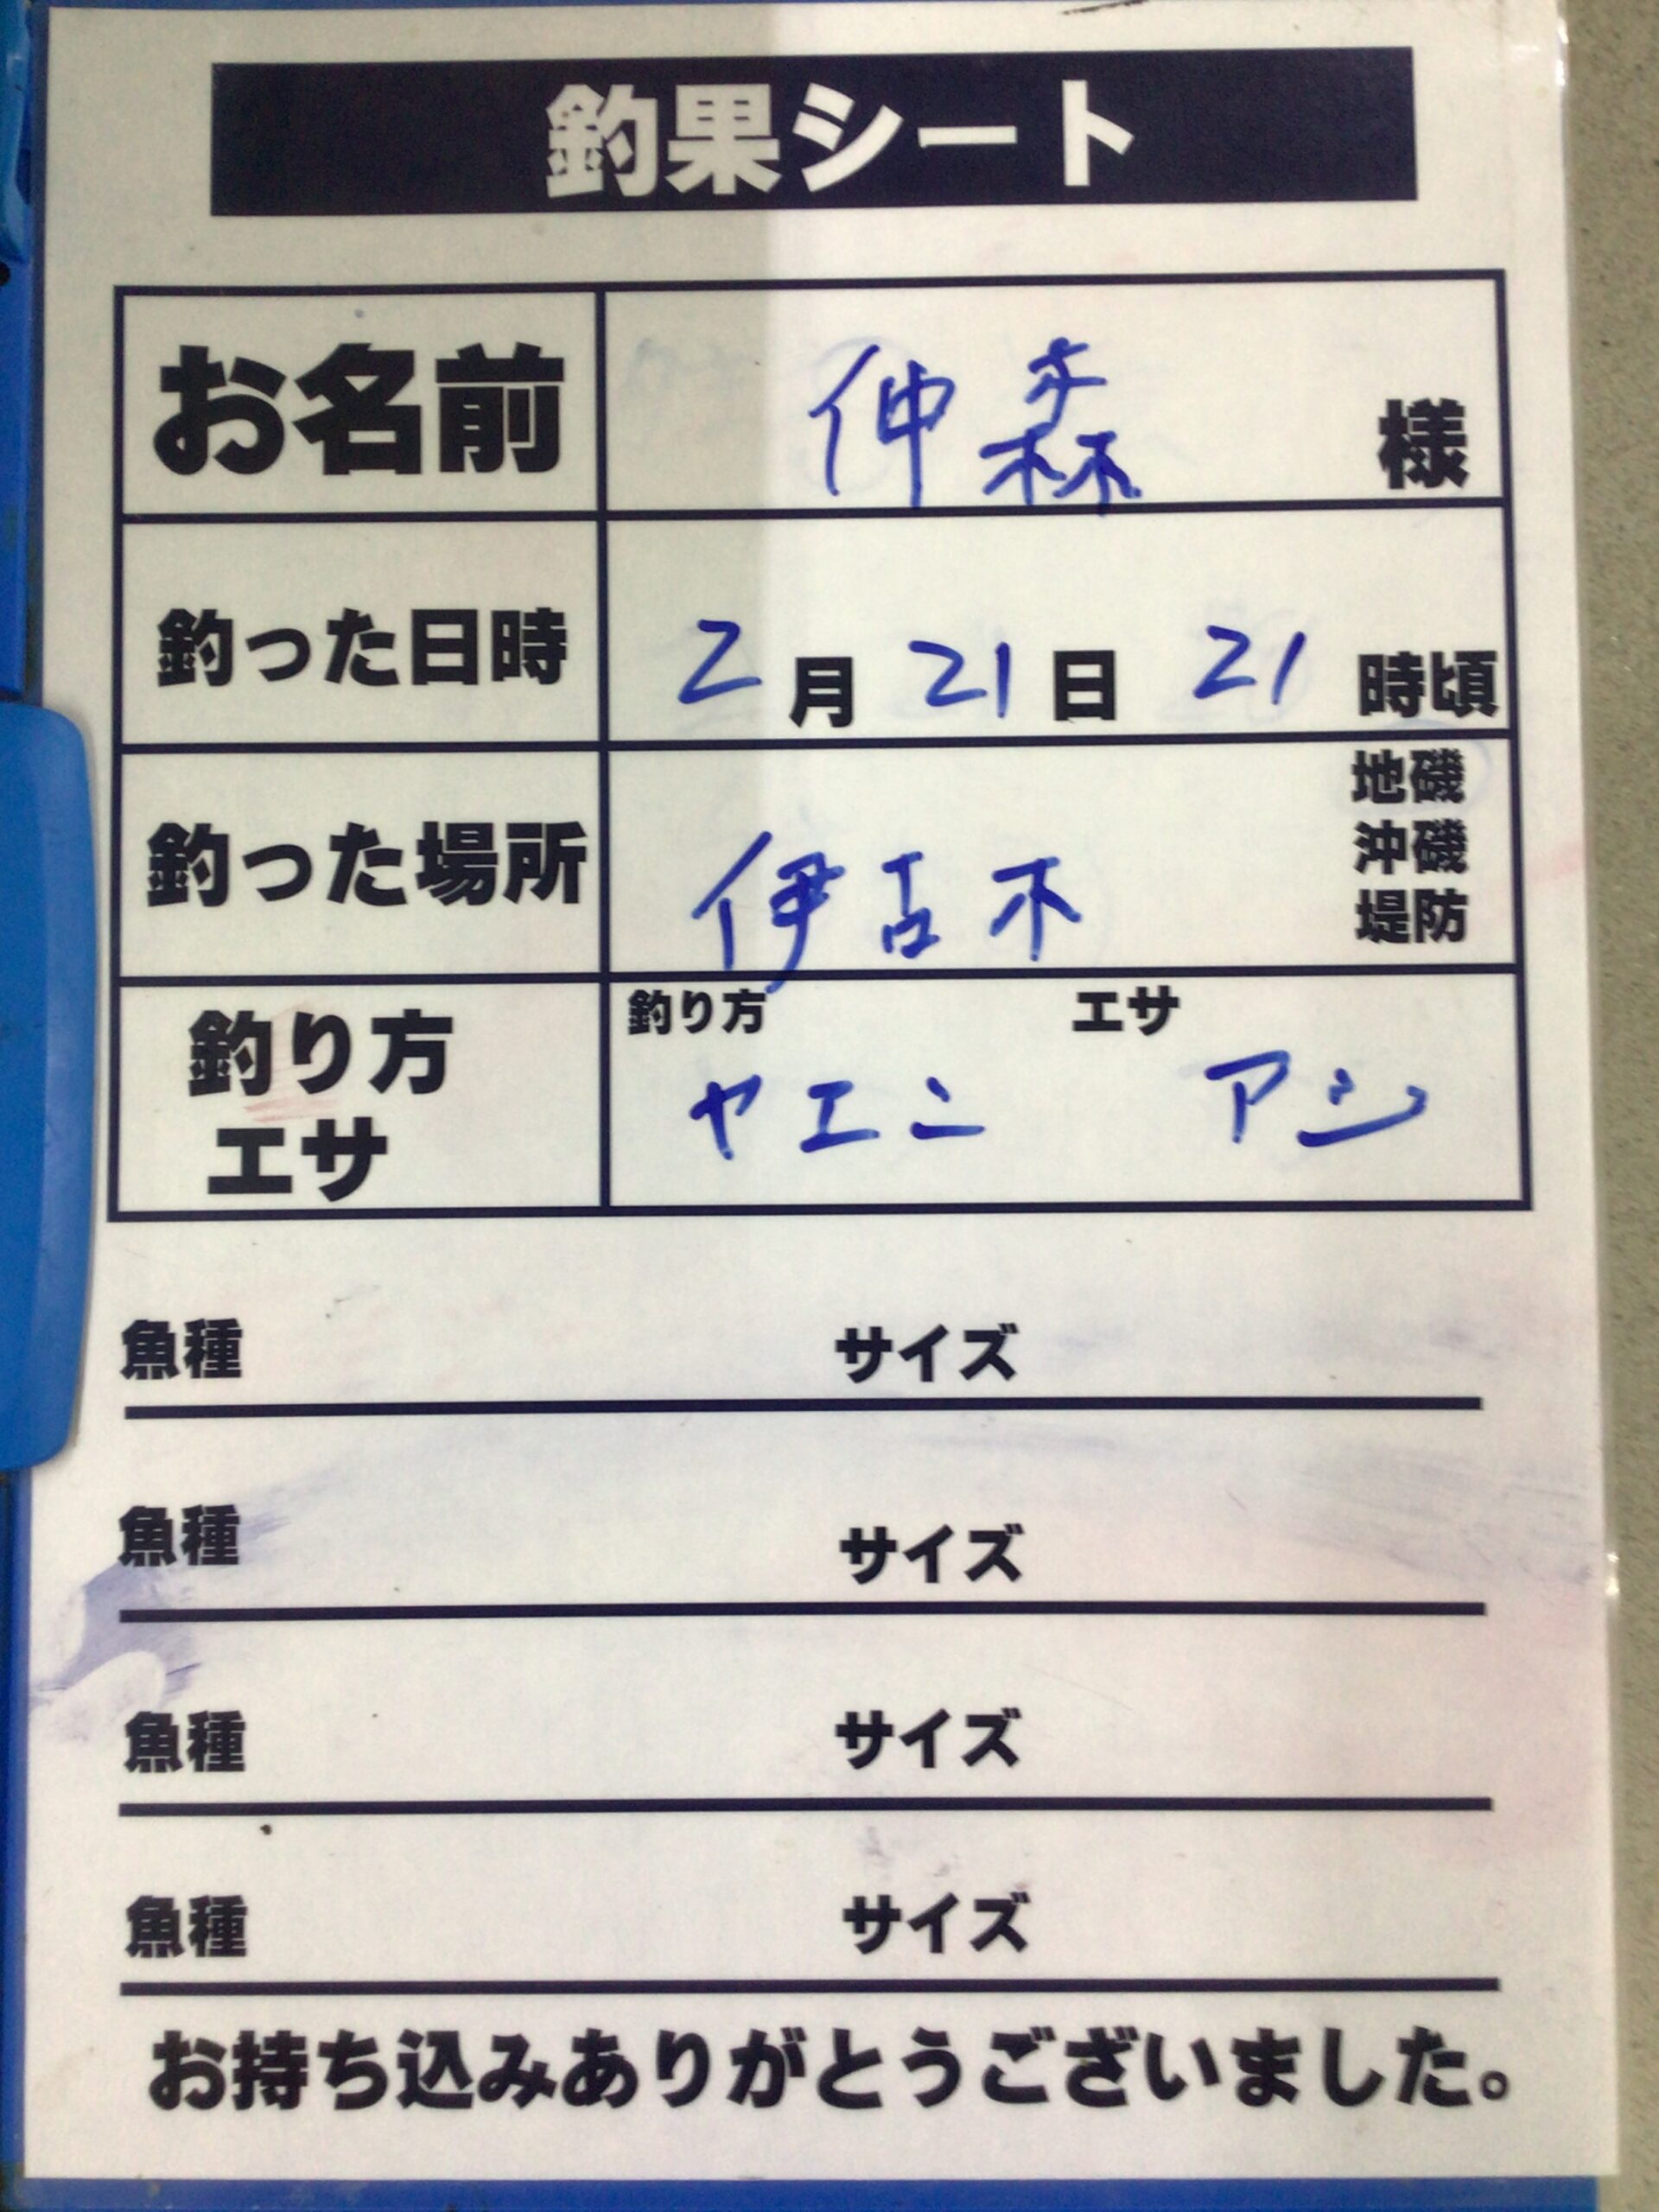 釣果シート
お名前 仲森 様
釣った日時 2月21日21時頃
釣った場所 伊古木 地磯
沖磯
堤防
釣り方 エサ
釣り方
エサ
ヤエン アジ
魚種 サイズ
魚種 サイズ
魚種 サイズ
魚種 サイズ
お持ち込みありがとうございました。